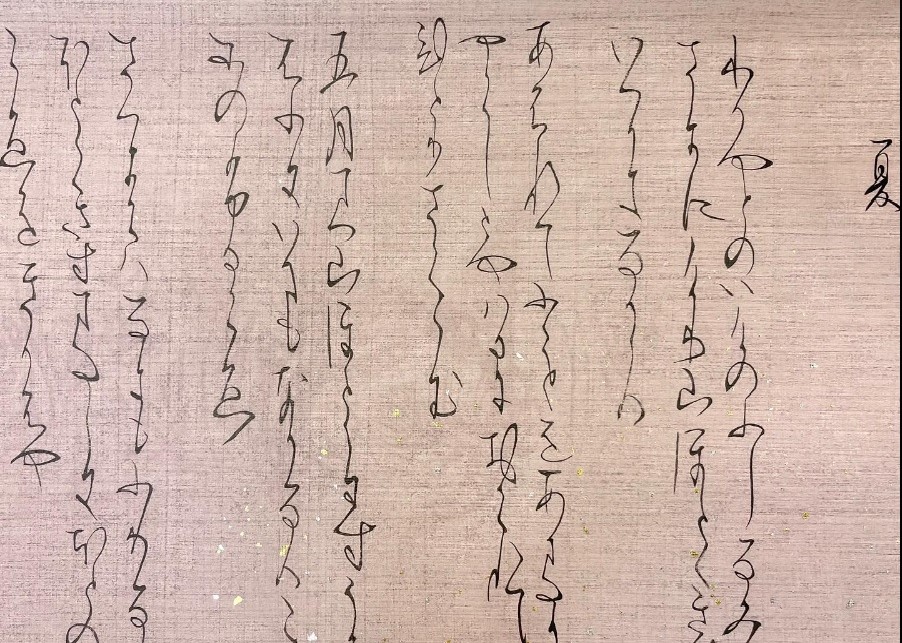 夏
わかやとのいけのふちなみ
さきにけり山ほとゝきす
いつかきなかむ
あはれてふことをあまた
やらしとや春におくれて
ひとりさくらむ
五月まつ山ほとゝきすう
ちはふきいまもなかなむこ
そのふるこゑ
さつきこはなきもふりなむ
ほとゝきすまたしきほとの
こゑをきかはや